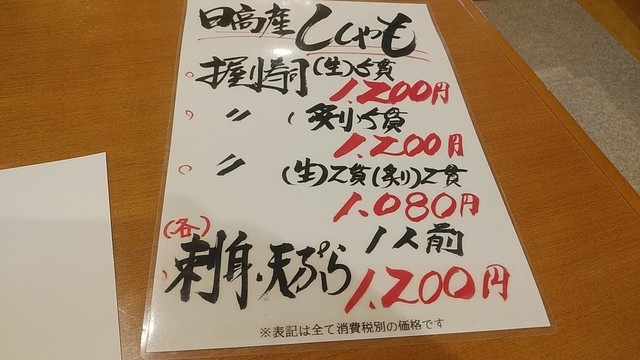 日高産 ししゃも
○ 握り寿司(生)5貫
1.200円
○ 〃 (炙り)5貫
1.200円
○ 〃 (生)2貫(炙り)2貫
1.080円
(各)
刺身・天ぷら 1人前
1.200円
※表記は全て消費税別の価格です